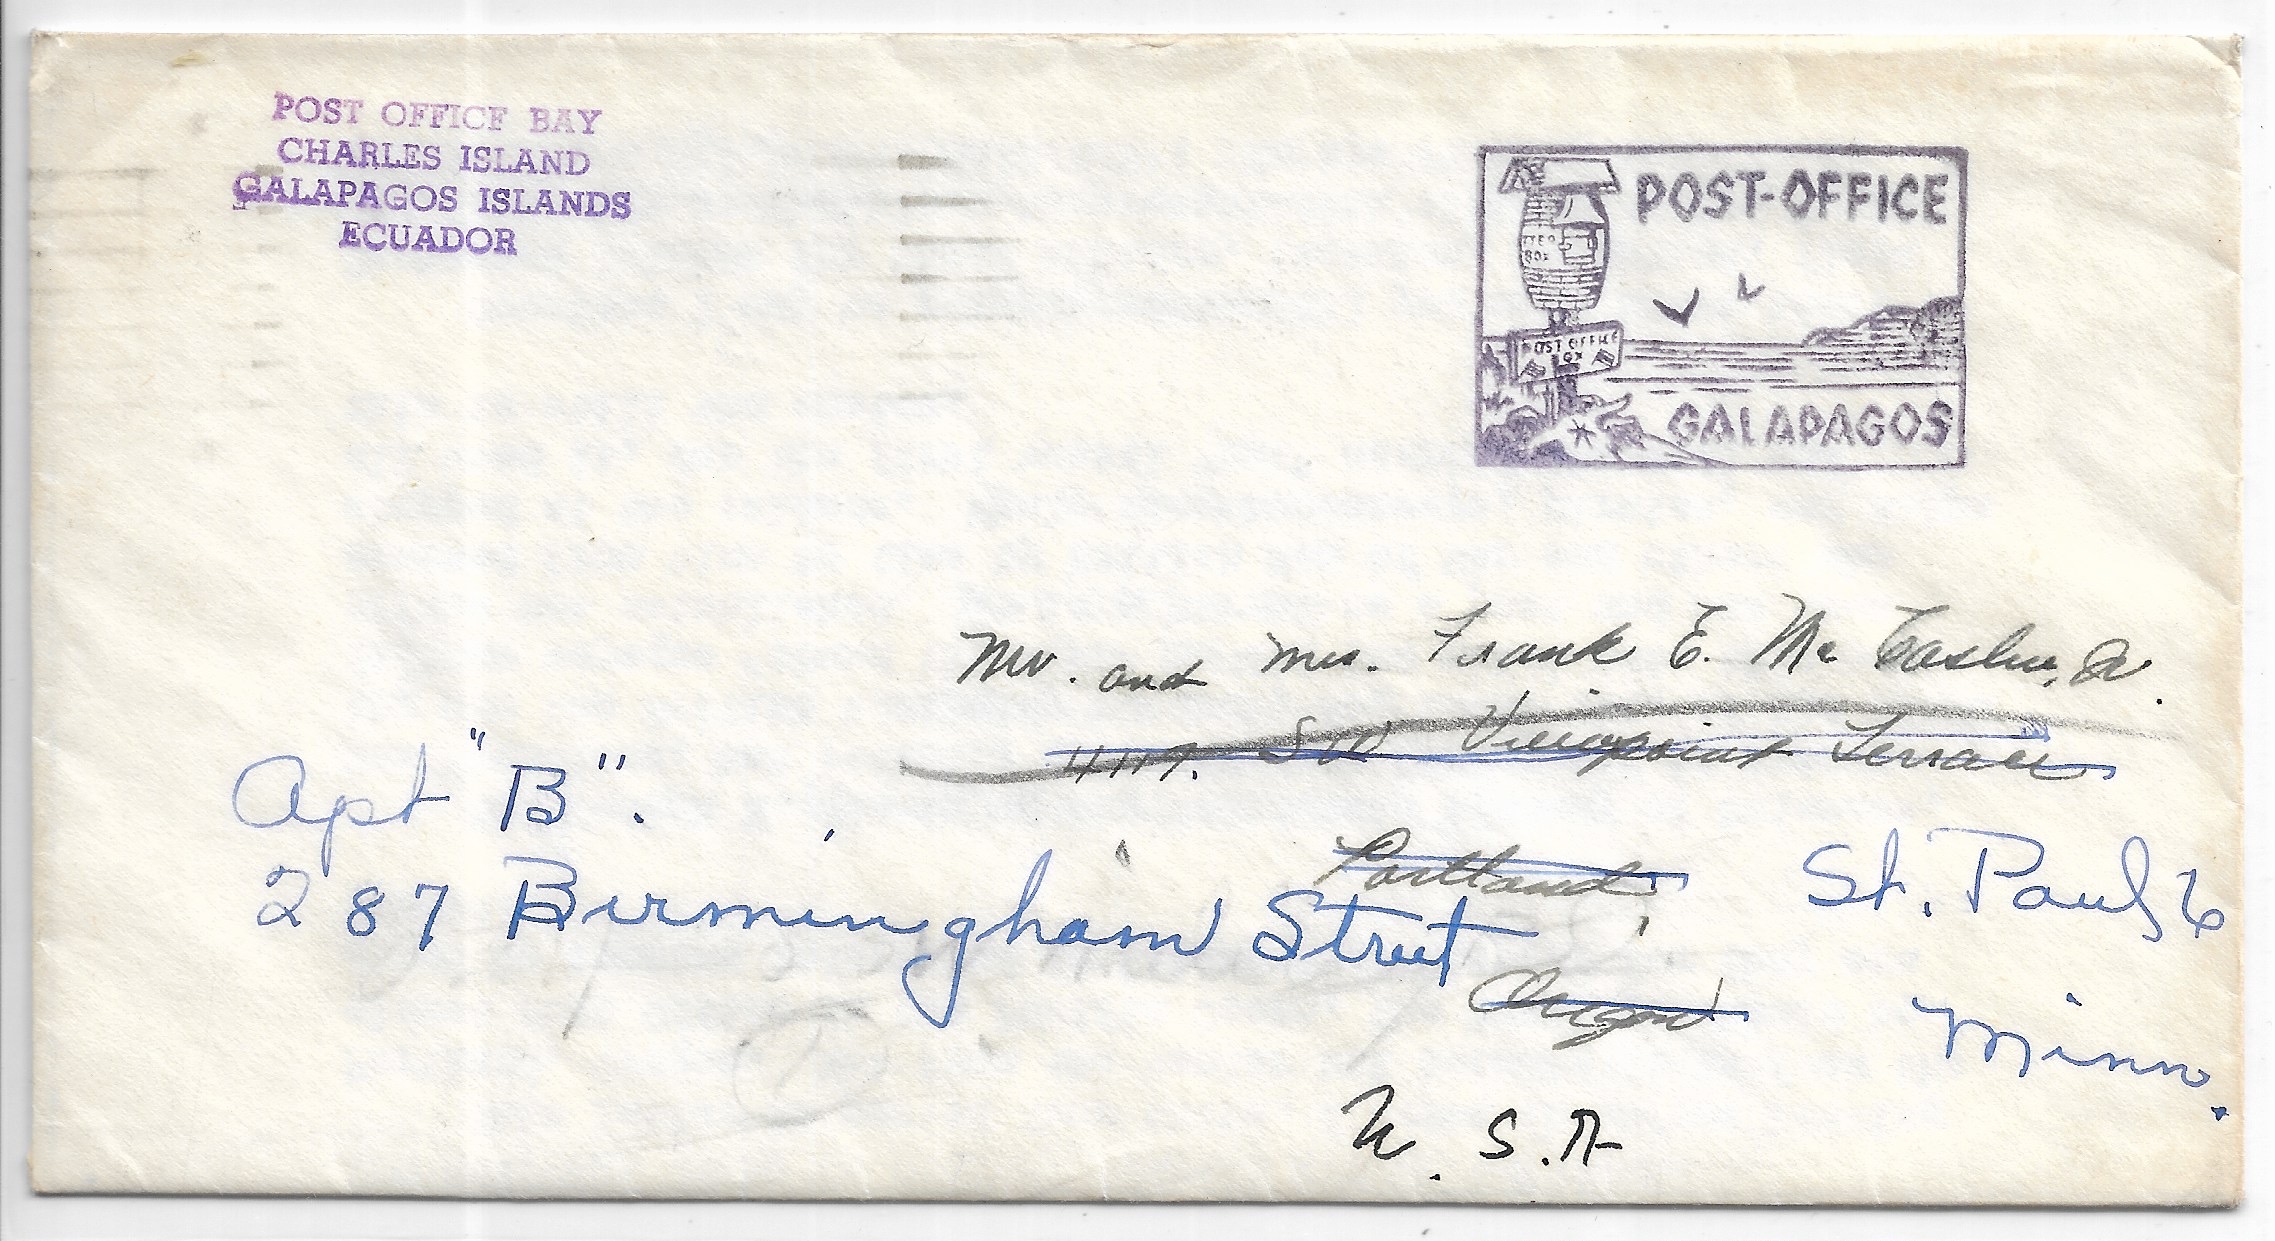 POST OFFICE BAY
CHARLES ISLAND
GALAPAGOS ISLANDS
ECUADOR
POST-OFFICE
BOX
POST OFFICE
BOX
GALAPAGOS
Mr. and Mrs. Frank E. Mc Caslin, Jr.
4117. SW Viewpoint Terrace
Portland,
Oregon
U.S.A
Apt "B".
287 Birmingham Street
St. Paul 6
Minn.